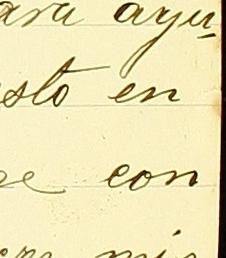 ara ayu
sto en
e con